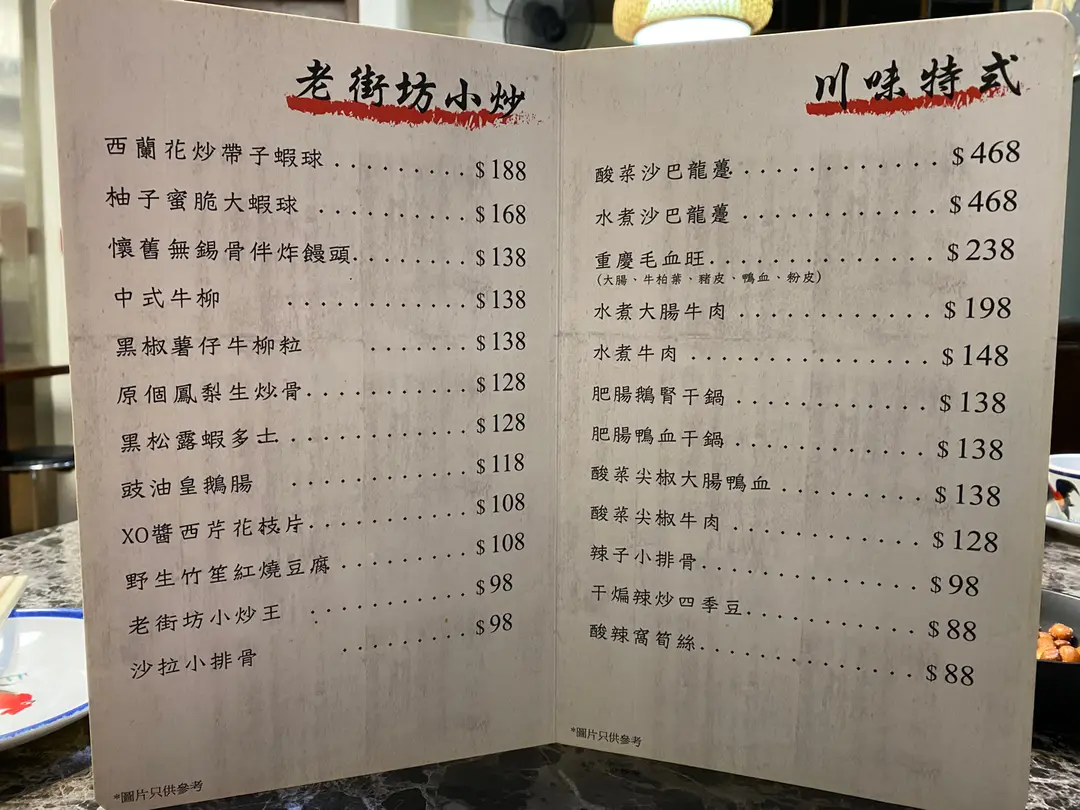 老街坊小炒
西蘭花炒帶子蝦球 . . . . . . . $188
柚子蜜脆大蝦球 . . . . . . . . . $168
懷舊無錫骨伴炸饅頭. . . . . . . $138
中式牛柳 . . . . . . . . . . . $138
黑椒薯仔牛柳粒 . . . . . . $138
原個鳳梨生炒骨. . . . . . . . . . $128
黑松露蝦多士. . . . . . . . . . . $128
豉油皇鵝腸 . . . . . . . . . . . $118
XO醬西芹花枝片. . . . . . . . . . $108
野生竹笙紅燒豆腐 . . . . . . . . $108
老街坊小炒王 . . . . . . . . . . $98
沙拉小排骨 . . . . . . . . $98
*圖片只供參考
川味特式
酸菜沙巴龍躉. . . . . . . . . . . . $468
水煮沙巴龍躉 . . . . . . . . . . . $468
重慶毛血旺. . . . . . . . . . . . . $238
(大腸、牛柏葉、豬皮、鴨血、粉皮)
水煮大腸牛肉 . . . . . . . . . . . $198
水煮牛肉 . . . . . . . . . . . . . $148
肥腸鵝腎干鍋 . . . . . . . . . . . $138
肥腸鴨血干鍋 . . . . . . . . . . . $138
酸菜尖椒大腸鴨血 . . . . . . . . . $138
酸菜尖椒牛肉 . . . . . . . . . . . $128
辣子小排骨. . . . . . . . . . . . . $98
干煸辣炒四季豆. . . . . . . . . . . $88
酸辣窩筍絲. . . . . . . . . . . . . $88
*圖片只供參考